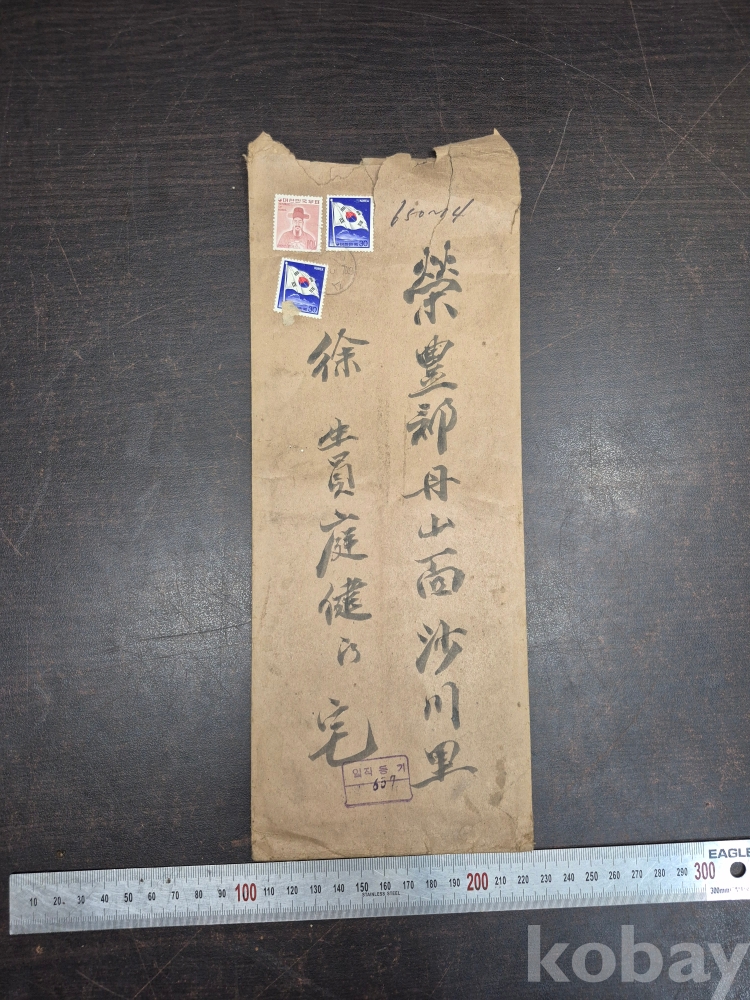 대한민국우표
KOREA
30
KOREA
30
650-14
榮豊郡丹山面沙川里
徐生員庭健氏宅
임직등기
637
EAGLE
10 20 30 40 50 60 70 80 90 100 110 120 130 140 150 160 170 180 190 200 210 220 230 240 250 260 270 280 290 300
STAINLESS STEEL
300mm
kobay